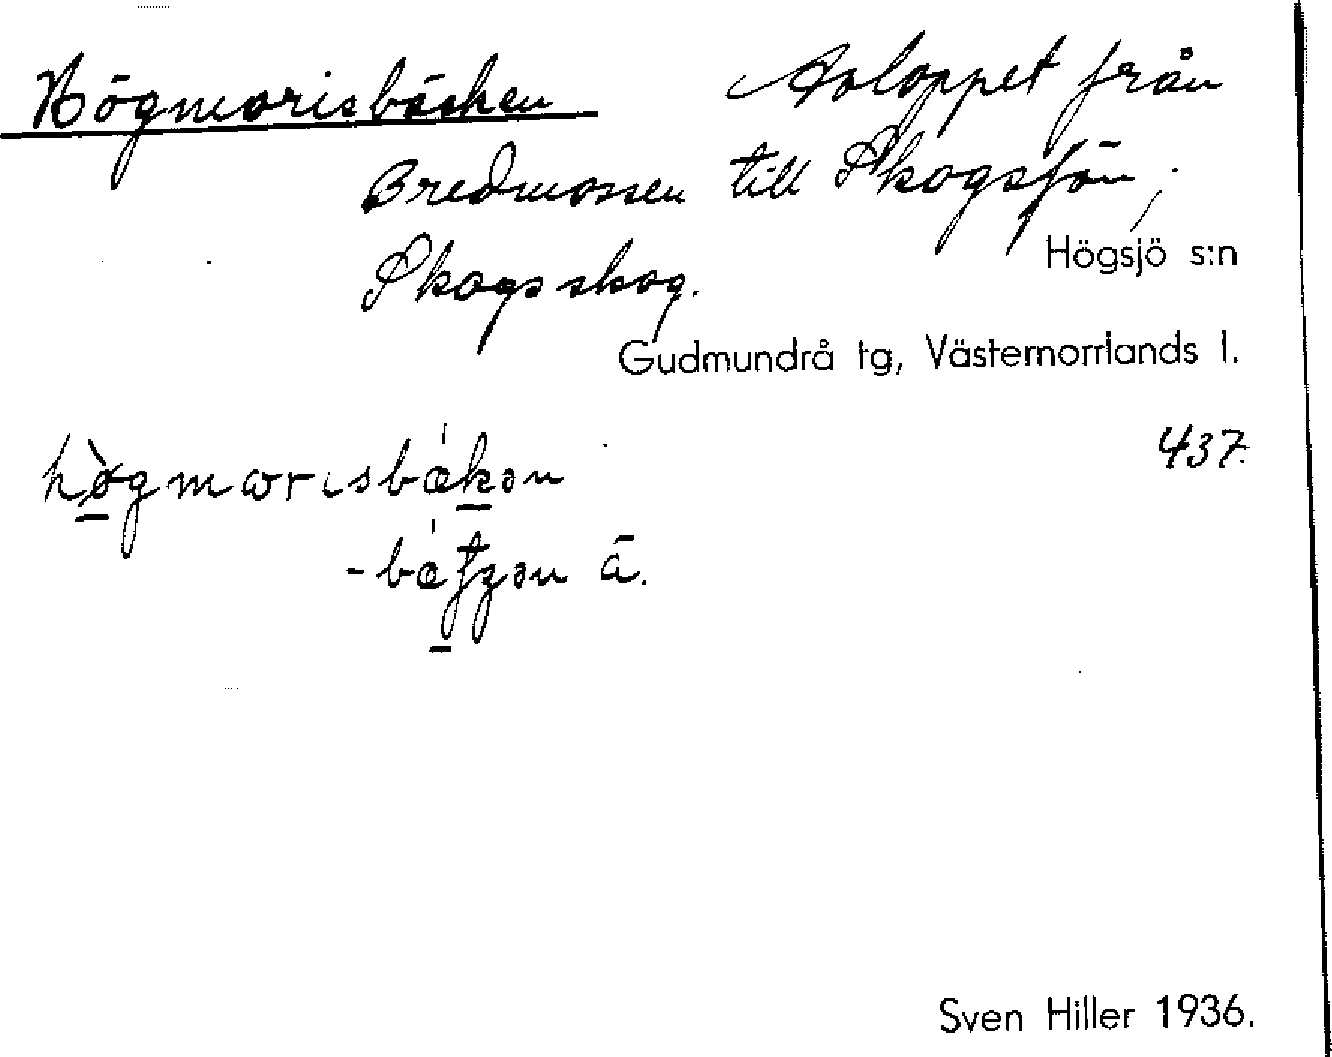 Högmorisbäcken Avloppet från
Bredmossen till Skogssjön;
Skogs skog. Högsjö s:n
Gudmundrå tg, Västernorrlands l.
437.
hø̀gmωrisbækən
-bætȷən ä.
Sven Hiller 1936.